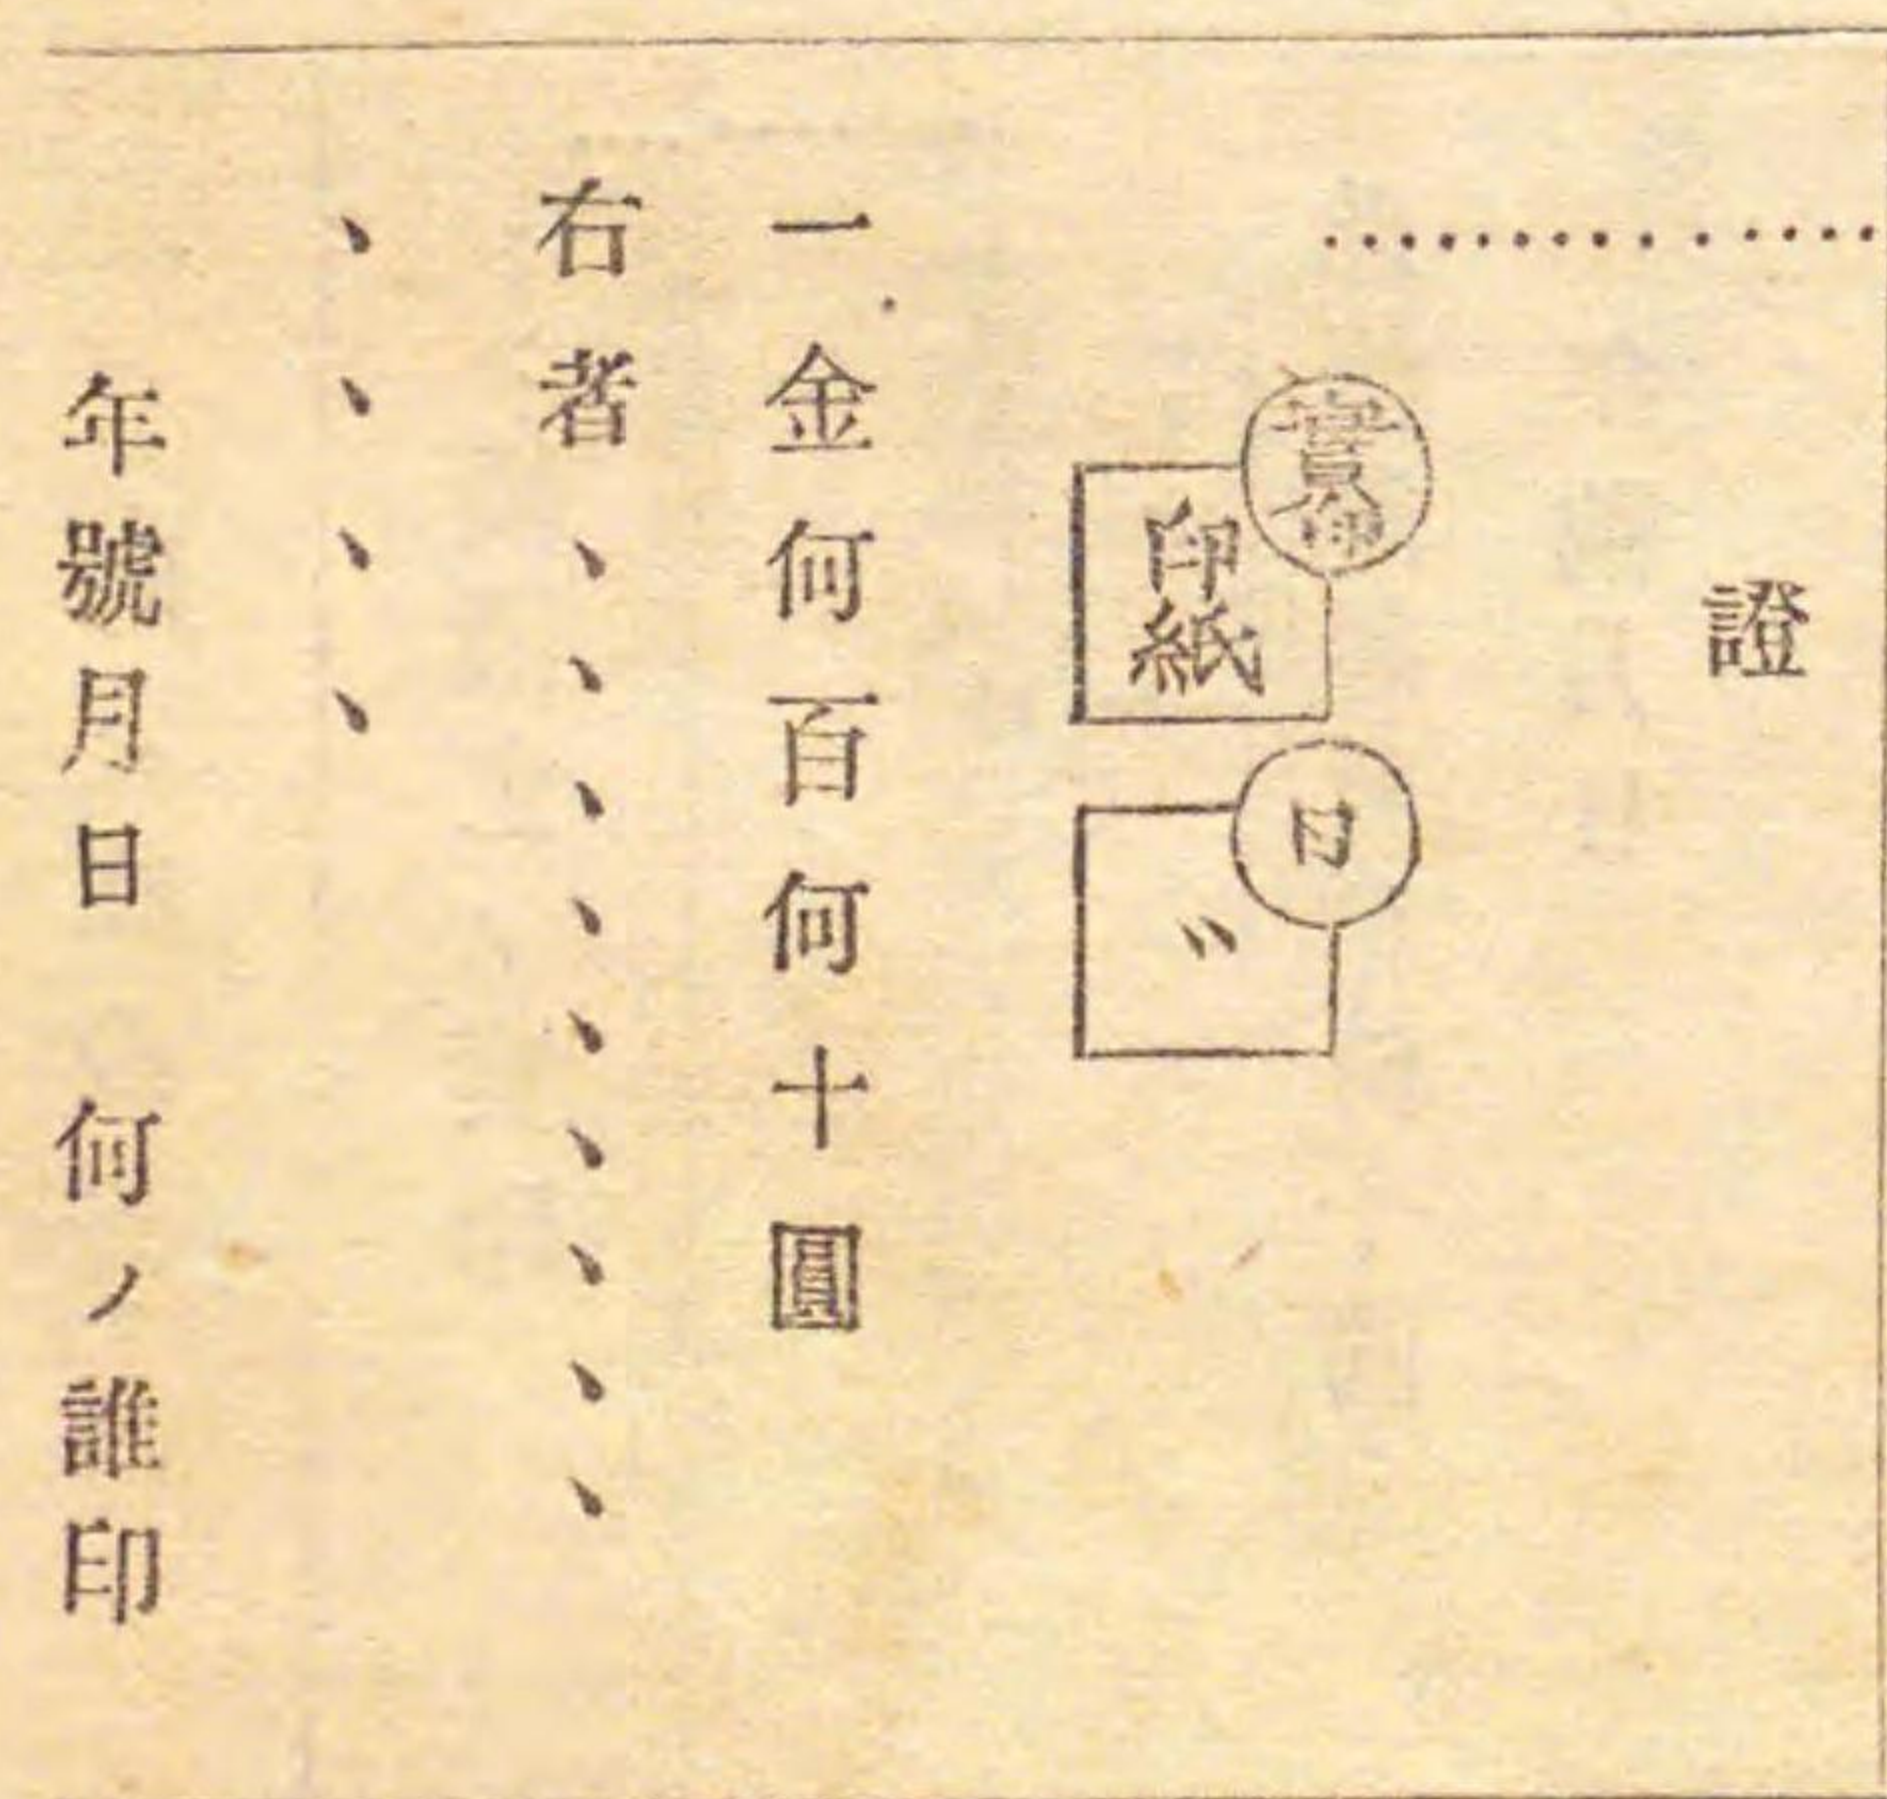 證
實印
印紙
〃
一金何百何十圓
右者、、、、、、、、、
、、、、
年號月日 何ノ誰印